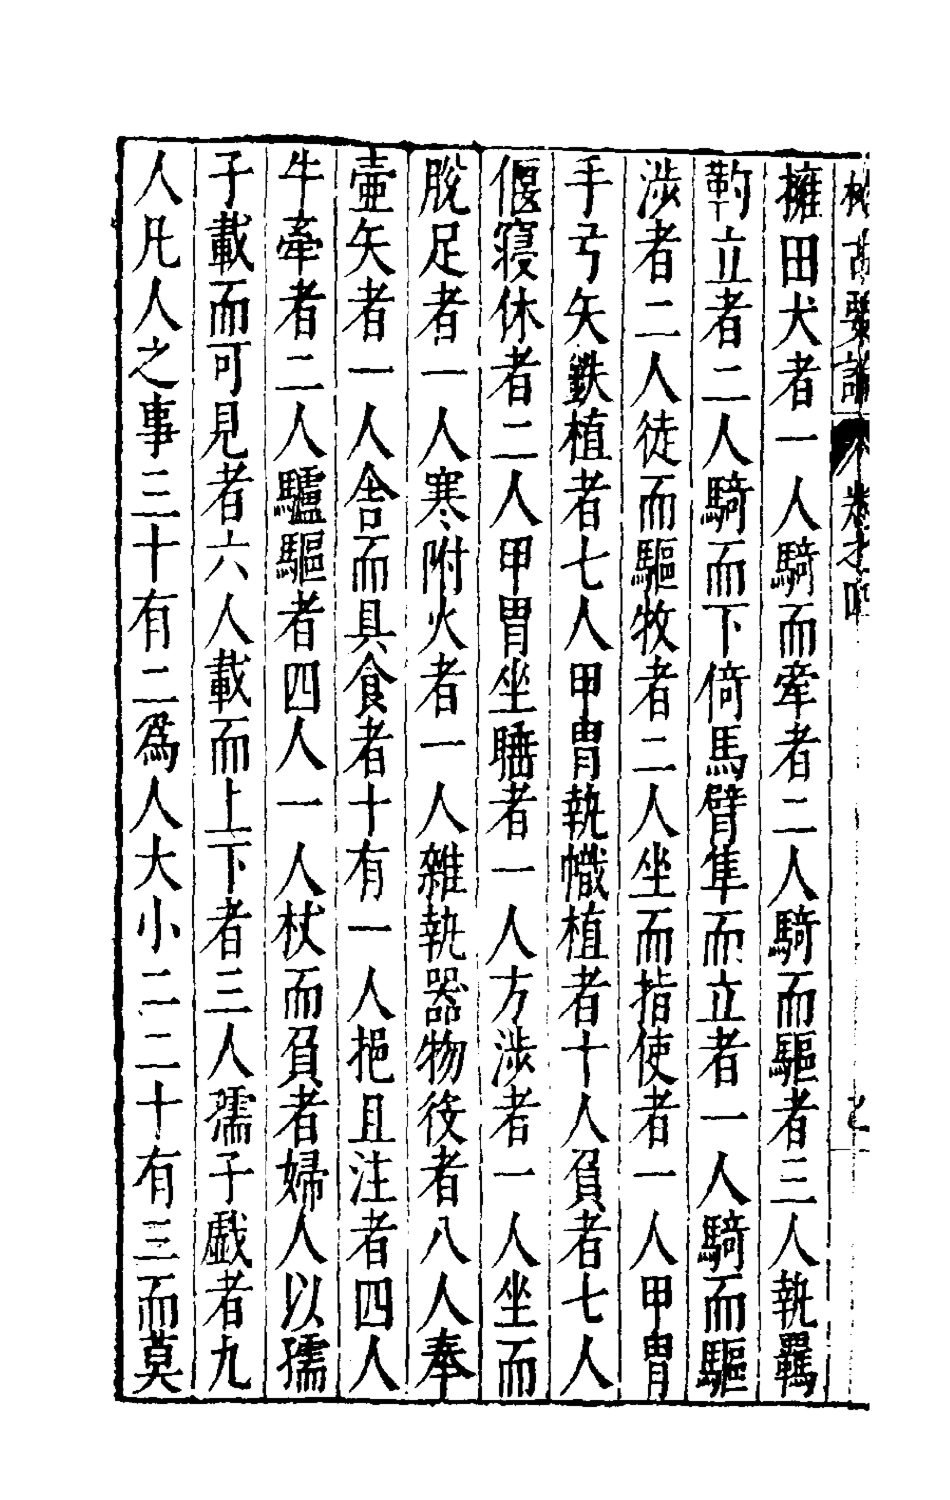 擁田犬者一人騎而牽者二人騎而驅者三人執羈
靮立者二人騎而下倚馬臂隼而立者一人騎而驅
涉者二人徒而驅牧者二人坐而指使者一人甲冑
手弓矢鈇植者七人甲冑執幟植者十人負者七人
偃寢休者二人甲冑坐睡者一人方涉者一人坐而
脫足者一人寒附火者一人雜執器物役者八人奉
壺矢者一人舍而具食者十有一人挹且注者四人
牛牽者二人驢驅者四人一人杖而負者婦人以孺
子載而可見者六人載而上下者三人孺子戲者九
人凡人之事三十有二爲人大小二二十有三而莫